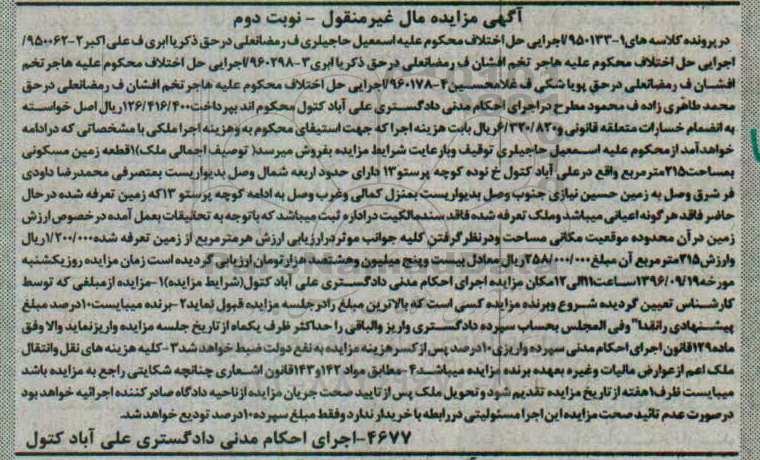 آگهی مزایده مال غیرمنقول - نوبت دوم
در پرونده کلاسه های ۱-۹۵۰۱۳۳/اجرایی حل اختلاف محکوم علیه اسمعیل حاجیلری ف رمضانعلی در حق ذکریا ابری ف علی اکبر ۲-۹۵۰۰۶۲/
اجرایی حل اختلاف محکوم علیه هاجر تخم افشان ف رمضانعلی در حق ذکریا ابری ۳-۹۶۰۲۹۸/اجرایی حل اختلاف محکوم علیه هاجر تخم
افشان ف رمضانعلی در حق پویا شکی ف غلامحسین ۴-۹۶۰۱۷۸/اجرایی حل اختلاف محکوم علیه هاجر تخم افشان ف رمضانعلی در حق
محمد طاهری زاده ف محمود مطرح در اجرای احکام مدنی دادگستری علی آباد کتول محکوم اند بپرداخت ۱۲۶/۴۱۶/۴۰۰ ریال اصل خواسته
به انضمام خسارات متعلقه قانونی و ۶/۳۲۰/۸۲۰ ریال بابت هزینه اجرا که جهت استیفای محکوم به وهزینه اجرا ملکی با مشخصاتی که در ادامه
خواهد آمد از محکوم علیه اسمعیل حاجیلری توقیف وبا رعایت شرایط مزایده بفروش میرسد( توصیف اجمالی ملک)۱قطعه زمین مسکونی
بمساحت ۲۱۵متر مربع واقع در علی آباد کتول خ نوده کوچه پرستو ۱۳ دارای حدود اربعه شمال وصل بدیواریست بمتصرفی محمدرضا داودی
فر شرق وصل به زمین حسین نیازی جنوب وصل بدیواریست بمنزل کمالی وغرب وصل به ادامه کوچه پرستو ۱۳که زمین تعرفه شده در حال
حاضر فاقد هر گونه اعیانی میباشد وملک تعرفه شده فاقد سندمالکیت در اداره ثبت میباشد که با توجه به تحقیقات بعمل آمده در خصوص ارزش
زمین در آن محدوده موقعیت مکانی مساحت ودر نظر گرفتن کلیه جوانب موثر در ارزیابی ارزش هر متر مربع از زمین تعرفه شده ۱/۲۰۰/۰۰۰ریال
وارزش ۲۱۵متر مربع آن مبلغ ۲۵۸/۰۰۰/۰۰۰ ریال معادل بیست وپنج میلیون وهشتصد هزار تومان ارزیابی گردیده است زمان مزایده روز یکشنبه
مورخه ۱۳۹۶/۰۹/۱۹ساعت ۱۱الی ۱۲مکان مزایده اجرای احکام مدنی دادگستری علی آباد کتول(شرایط مزایده)۱-مزایده از مبلغی که توسط
کارشناس تعیین گردیده شروع وبرنده مزایده کسی است که بالاترین مبلغ را در جلسه مزایده قبول نماید ۲- برنده میبایست ۱۰درصد مبلغ
پیشنهادی را نقدا" وفی المجلس بحساب سپرده دادگستری واریز والباقی را حداکثر ظرف یکماه از تاریخ جلسه مزایده واریز نماید والا وفق
ماده ۱۲۹قانون اجرای احکام مدنی سپرده واریزی ۱۰درصد پس از کسر هزینه مزایده به نفع دولت ضبط خواهد شد ۳-کلیه هزینه های نقل وانتقال
ملک اعم از عوارض مالیات وغیره بعهده برنده مزایده میباشد ۴-مطابق مواد ۱۴۲و۱۴۳قانون اشعاری چنانچه شکایتی راجع به مزایده باشد
میبایست ظرف ۱هفته از تاریخ مزایده تقدیم شود و تحویل ملک پس از تایید صحت جریان مزایده از ناحیه دادگاه صادر کننده اجرائیه خواهد بود
در صورت عدم تائید صحت مزایده این اجرا مسئولیتی در رابطه با خریدار ندارد وفقط مبلغ سپرده ۱۰درصد تودیع خواهد شد.
۴۶۷۷-اجرای احکام مدنی دادگستری علی آباد کتول